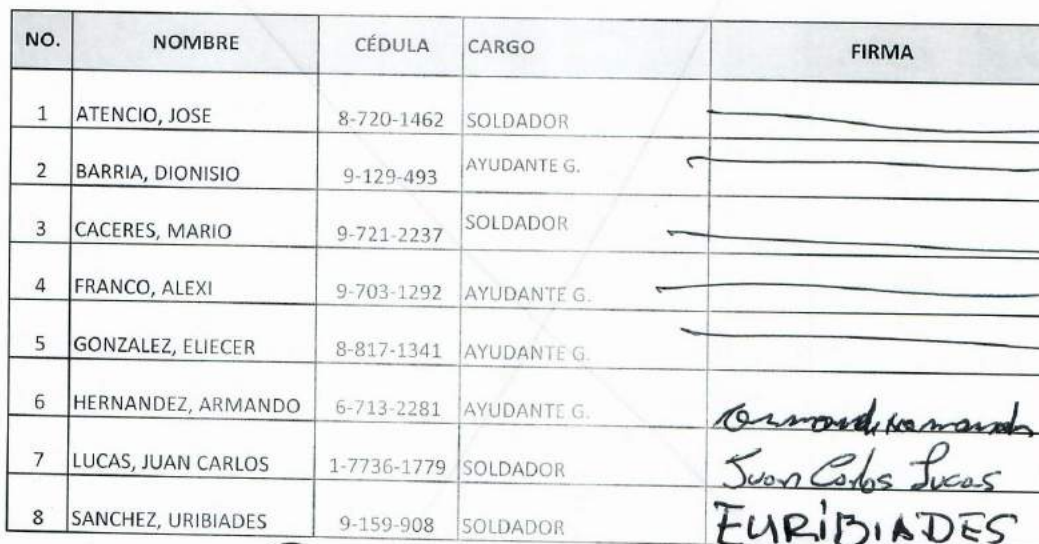 NO. NOMBRE CÉDULA CARGO FIRMA
1 ATENCIO, JOSE 8-720-1462 SOLDADOR
2 BARRIA, DIONISIO 9-129-493 AYUDANTE G.
3 CACERES, MARIO 9-721-2237 SOLDADOR
4 FRANCO, ALEXI 9-703-1292 AYUDANTE G.
5 GONZALEZ, ELIECER 8-817-1341 AYUDANTE G.
6 HERNANDEZ, ARMANDO 6-713-2281 AYUDANTE G.
7 LUCAS, JUAN CARLOS 1-7736-1779 SOLDADOR Juan Carlos Lucas
8 SANCHEZ, URIBIADES 9-159-908 SOLDADOR EURIBIADES